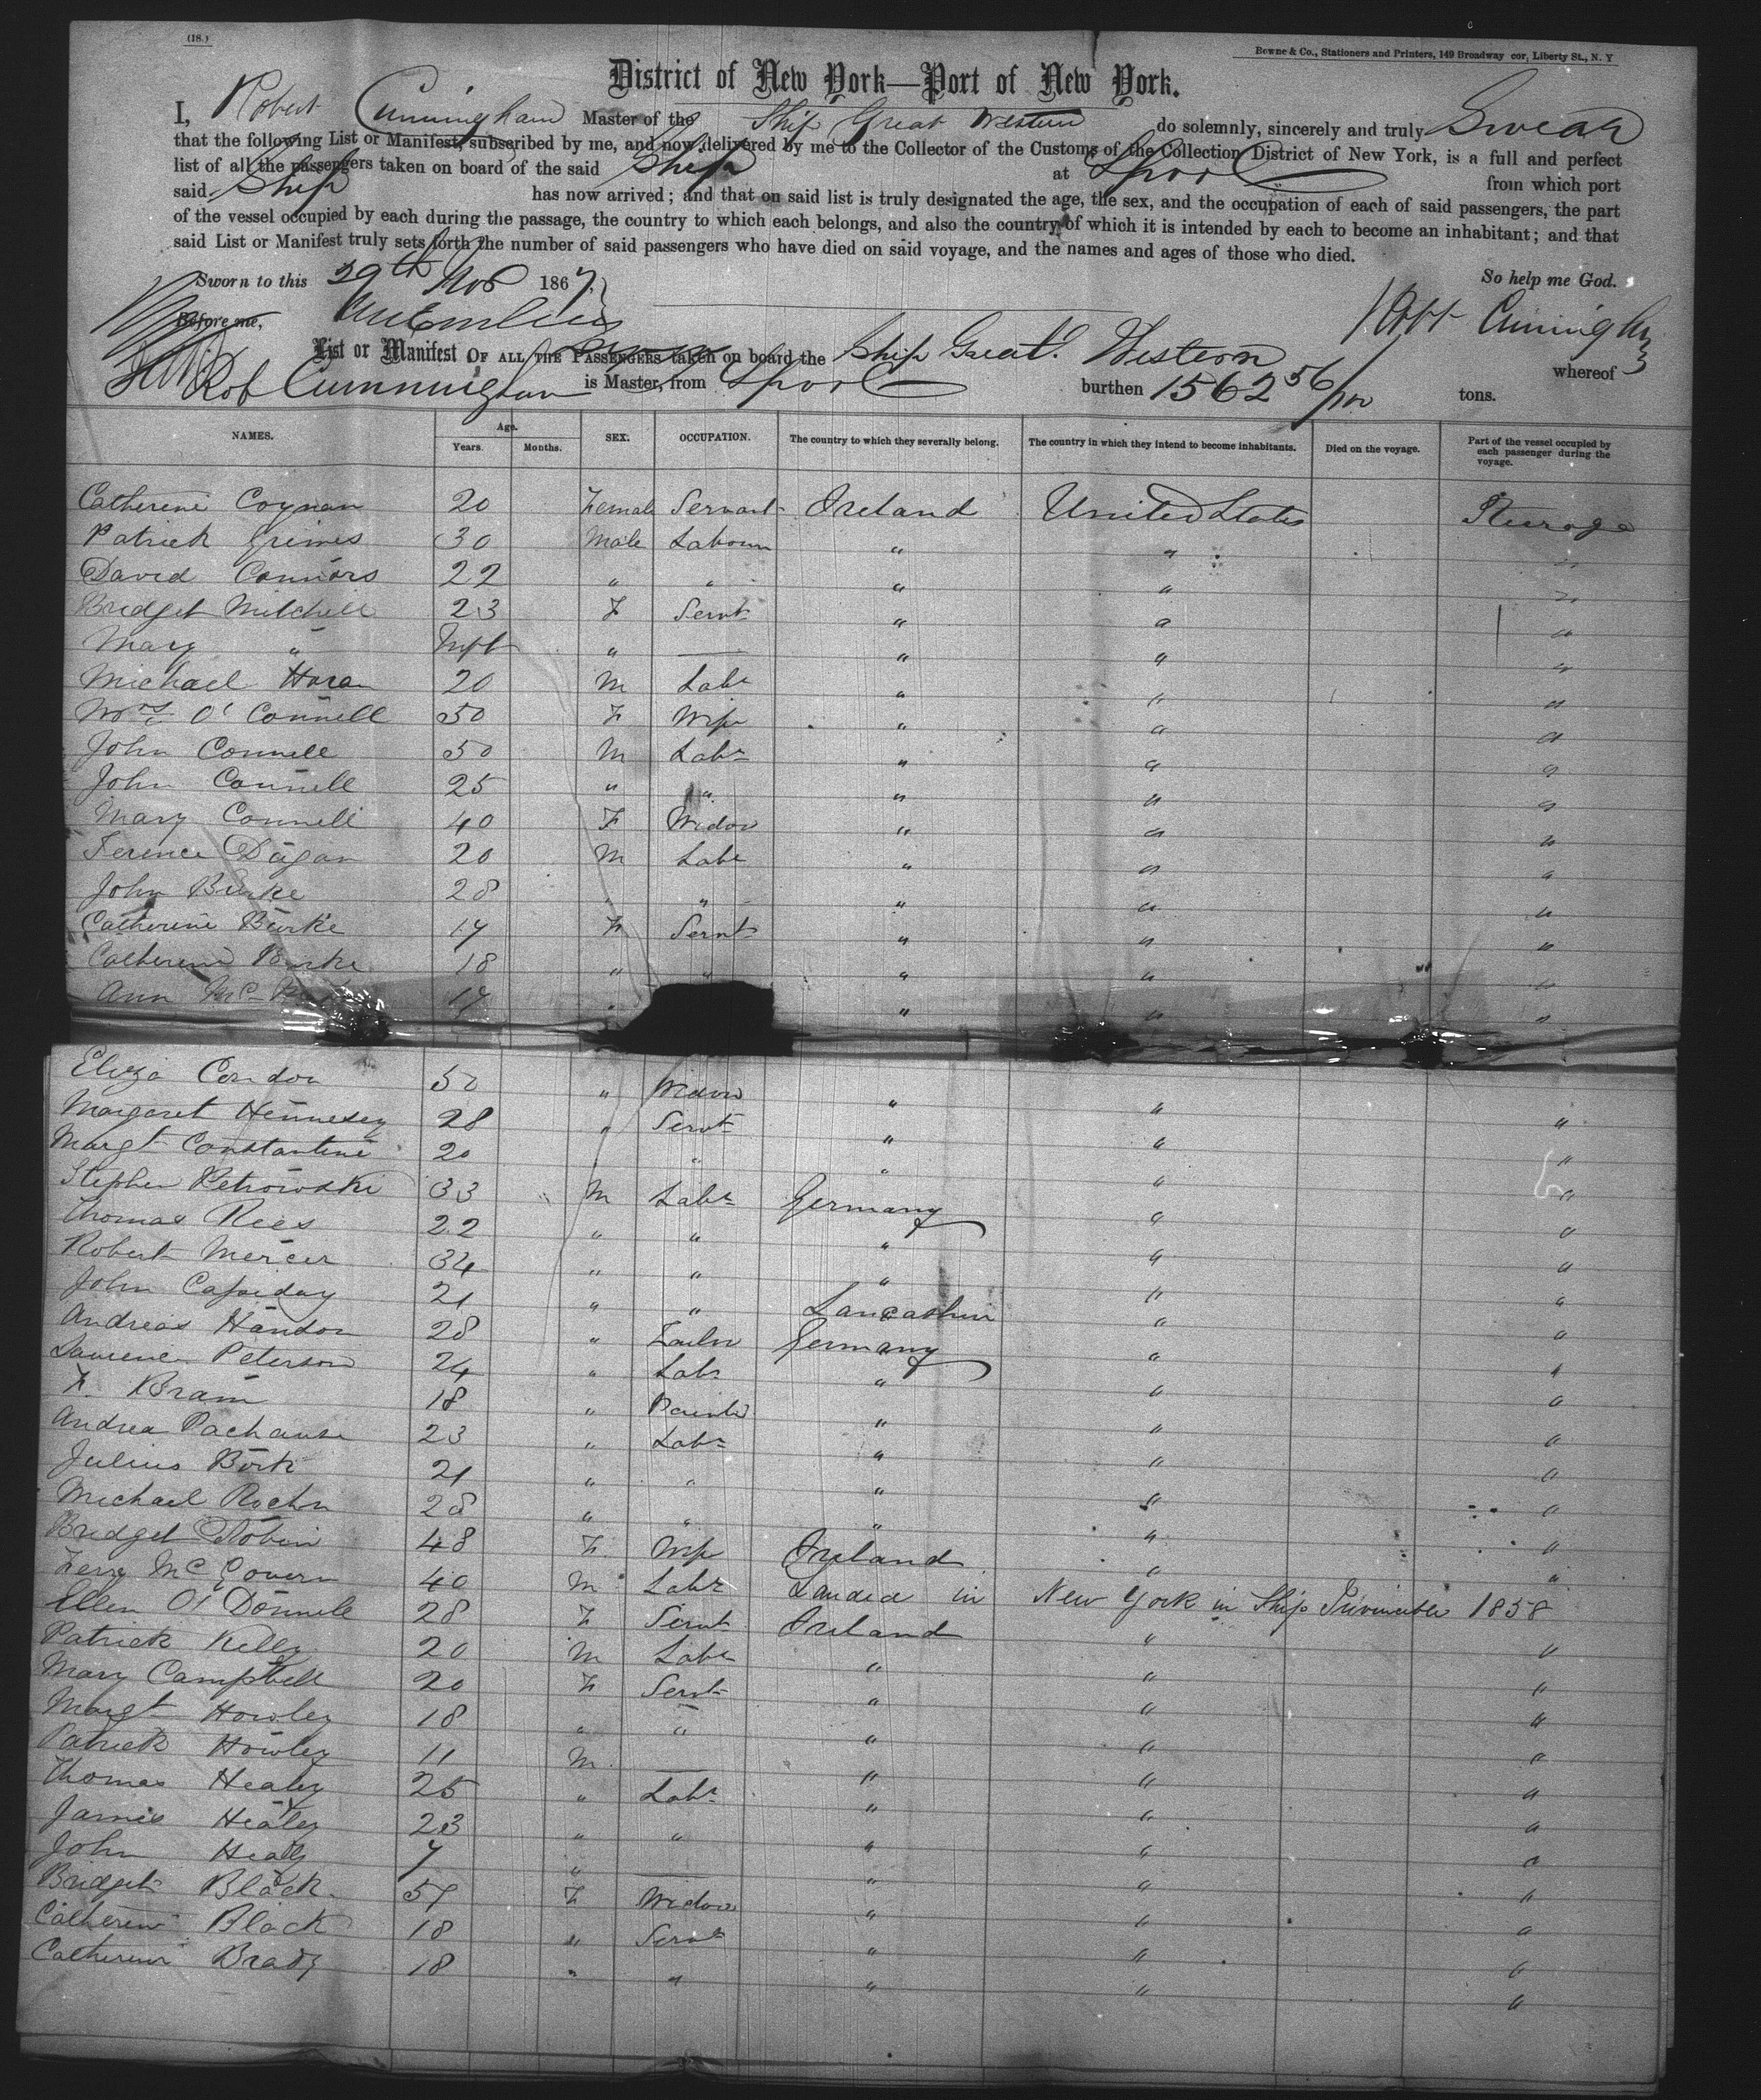 (18.)
Bowne & Co., Stationers and Printers, 149 Broadway cor, Liberty St., N. Y
District of New York—Port of New York.
I, Robert Cunningham Master of the Ship Great Western do solemnly, sincerely and truly Swear
that the following List or Manifest, subscribed by me, and now delivered by me to the Collector of the Customs of the Collection District of New York, is a full and perfect
list of all the passengers taken on board of the said Ship at Lpool from which port
said Ship has now arrived; and that on said list is truly designated the age, the sex, and the occupation of each of said passengers, the part
of the vessel occupied by each during the passage, the country to which each belongs, and also the country of which it is intended by each to become an inhabitant; and that
said List or Manifest truly sets forth the number of said passengers who have died on said voyage, and the names and ages of those who died.
Sworn to this 29th Nov 1867. So help me God.
Before me, Robt Cunningham
List or Manifest OF ALL THE PASSENGERS taken on board the Ship Great Western whereof
Rob Cunningham is Master, from Lpool burthen 1562 56/100 tons.
NAMES. Age. Years. Months. SEX. OCCUPATION. The country to which they severally belong. The country in which they intend to become inhabitants. Died on the voyage. Part of the vessel occupied by each passenger during the voyage.
Catherine Coynan 20 Female Servant Ireland United States Steerage
Patrick Grimes 30 Male Labourer " " "
David Connors 22 " " " " "
Bridget Mitchell 23 F Servt " " "
Mary " Inft " — " " "
Michael Horan 20 M Labr " " "
O'Connell 50 F Wife " " "
John Connell 50 M Labr " " "
John Connell 25 " " " " "
Mary Connell 40 F Widow " " "
Terence Dagan 20 M Labr " " "
John Burke 28 " " " " "
Catherine Burke 17 F Servt " " "
Catherine Burke 18 " " " " "
Ann Mc 17 " " " "
Eliza Condon 50 " Widow " " "
Margaret Hennesey 28 " Servt " " "
Margt Constantine 20 " " " "
Stephen Petrowski 33 M Labr Germany " "
Thomas Rees 22 " " " " "
Robert Mercer 34 " " " " "
John Cassiday 21 " " Lancashire " "
Andreas Handon 28 " Tailor Germany " "
Lawrence Peterson 24 " Labr " " "
F. Bram 18 " Painter " " "
Andrea Pachause 23 " Labr " " "
Julius Bork 21 " " " " "
Michael Rochn 28 " " " " "
Bridget Tobin 48 F Wife Ireland " "
Terry McGovern 40 M Labr Landed in New York in Ship Invincible 1858
Ellen O'Donnell 28 F Servt Ireland " "
Patrick Kelly 20 M Labr " " "
Mary Campbell 20 F Servt " " "
Margt Howley 18 " " " " "
Patrick Howley 11 M — " " "
Thomas Healey 25 " Labr " " "
James Healey 23 " " " " "
John Healy 7 " — " " "
Bridget Black 57 F Widow " " "
Catherine Black 18 " Servt " " "
Catherine Brady 18 " " " " "